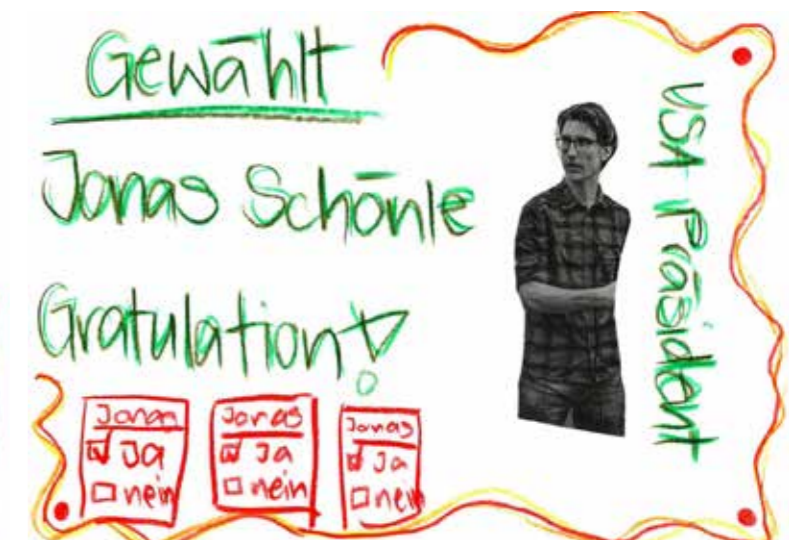 Gewählt
Jonas Schönle
Gratulation!
USA Präsident
Jonas
☑ Ja
☐ nein
Jonas
☑ Ja
☐ nein
Jonas
☑ Ja
☐ nein